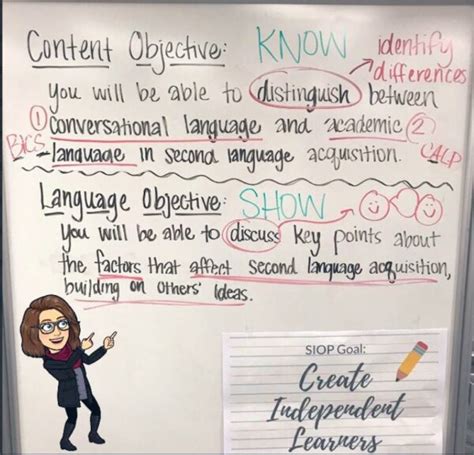 Content Objective: KNOW identify
differences
you will be able to distinguish between
① conversational language and academic ②
BICS - language in second language acquisition. CALP
Language Objective: SHOW
you will be able to discuss key points about
the factors that affect second language acquisition,
building on others' ideas.
SIOP Goal:
Create
Independent
Learners